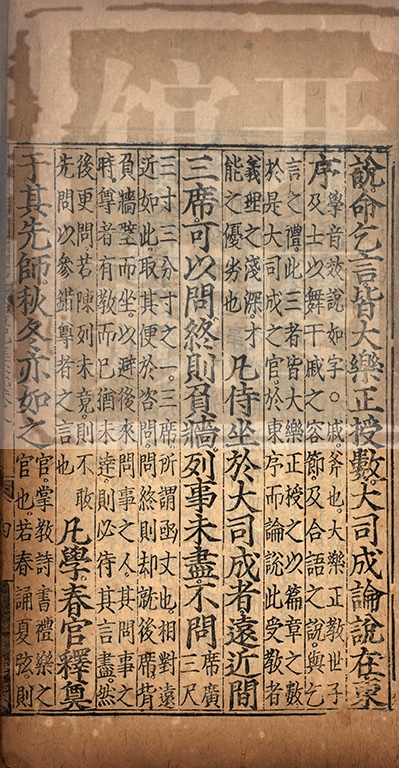 說命乞言皆大樂正授數大司成論說在東
序
學音效說如字○戚斧也大樂正教世子
及士以舞干戚之容節及合語之說與乞
言之禮此三者皆大樂正授之以篇章之數
於是大司成之官於東序而論說此受教者
義理之淺深才
能之優劣也
凡侍坐於大司成者遠近間
三席可以問終則負牆列事未盡不問
席廣
三尺
三寸三分寸之一三席所謂函丈也相對遠
近如此取其便於咨問問終則却就後席背
負牆壁而坐以避後來問事之人其問事之
時尊者有敎而己猶未達則必待其言盡然
後更問若陳列未竟則不敢
先問以參錯尊者之言也
凡學春官釋奠
于其先師秋冬亦如之
官掌教詩書禮樂之
官也若春誦夏弦則
四